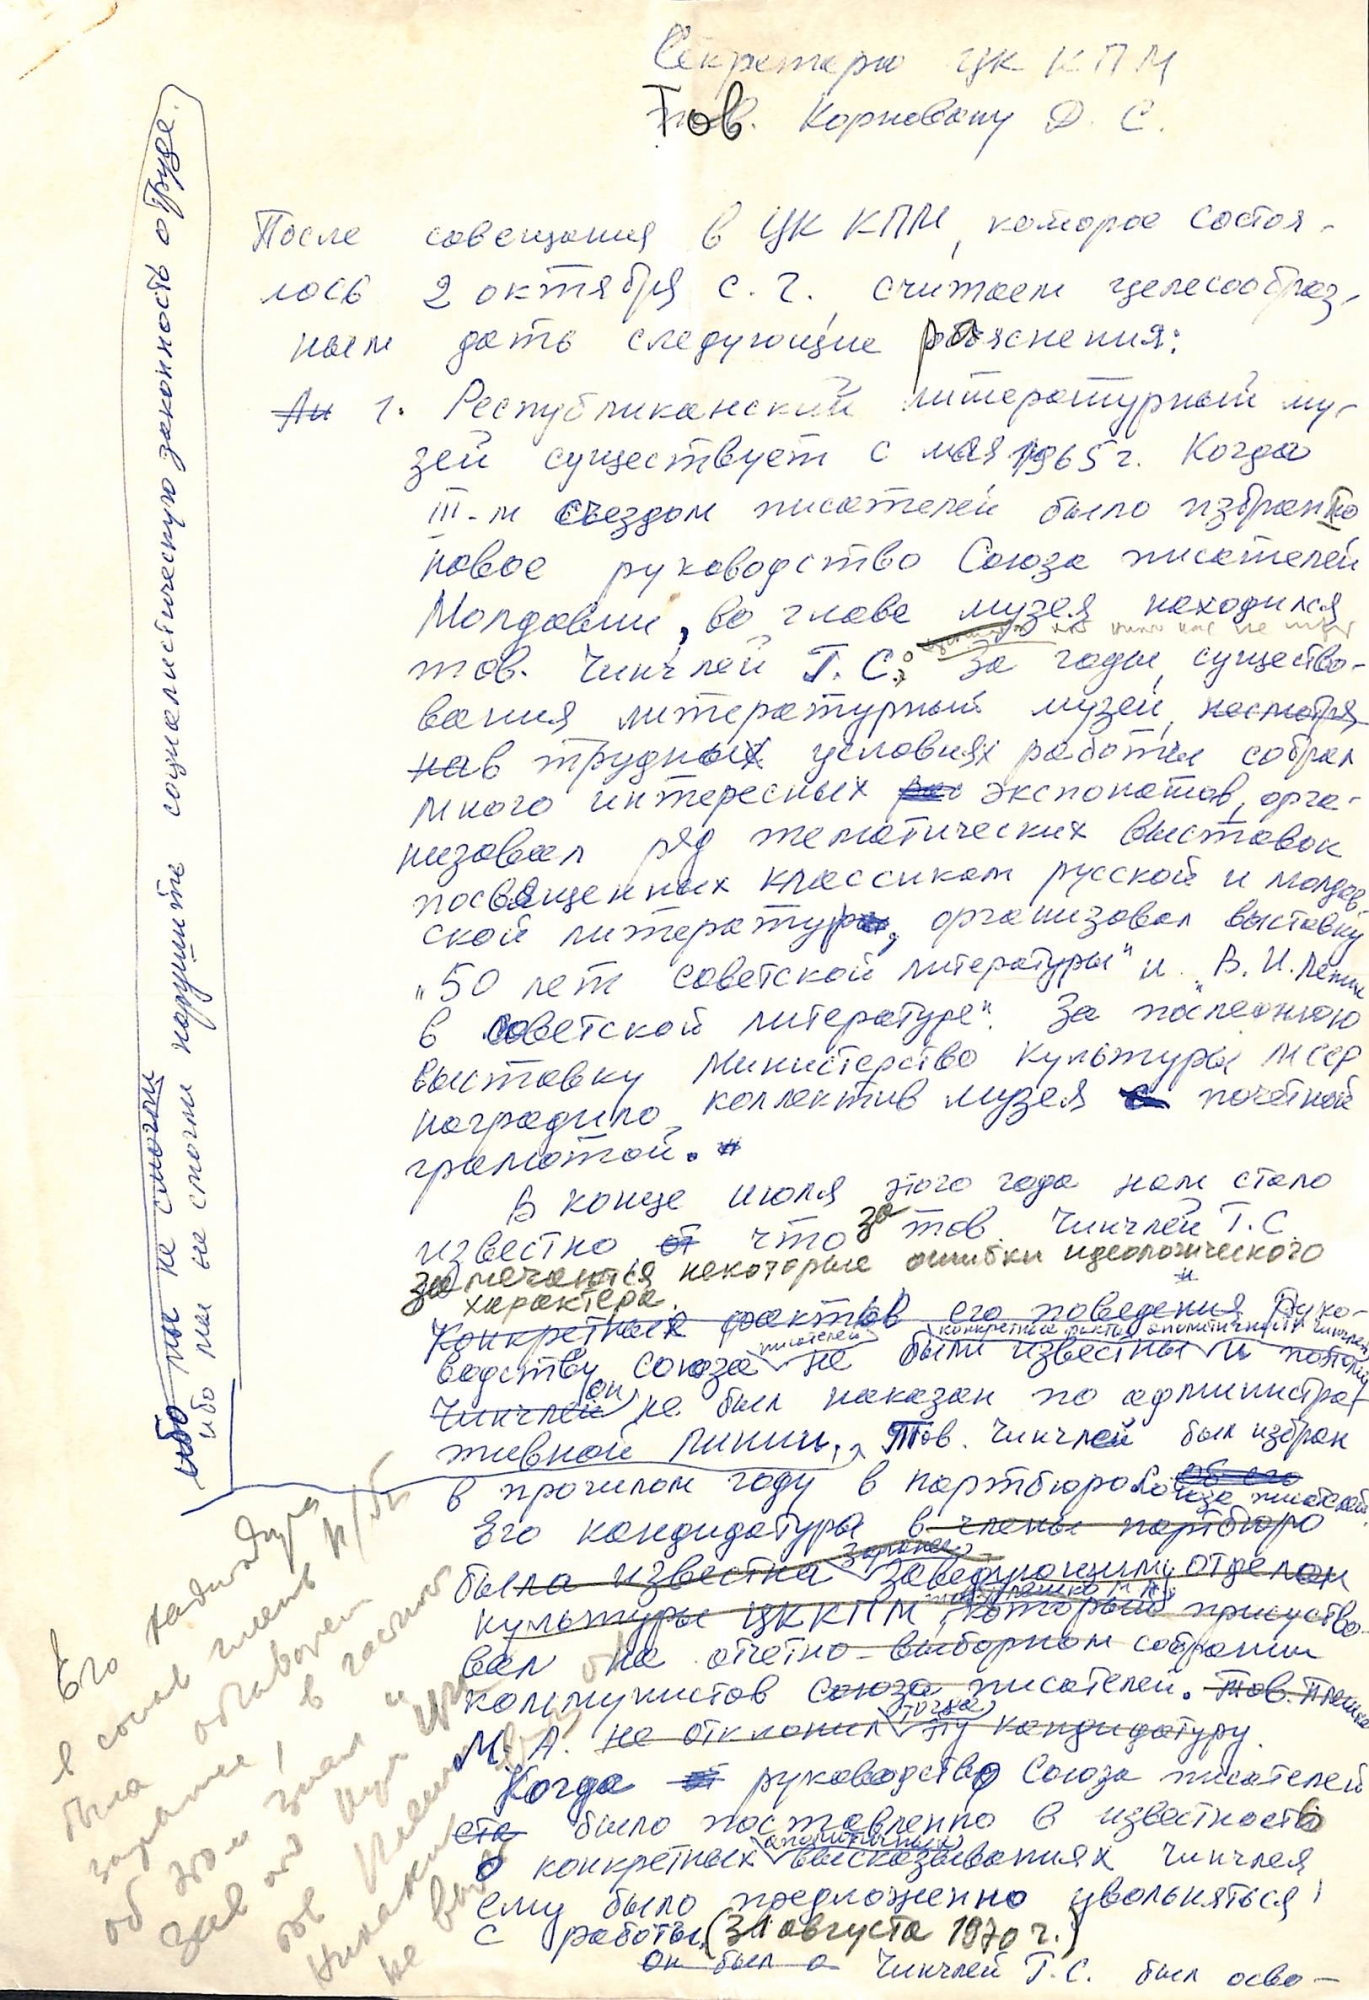 Секретарю ЦК КПМ
Тов. Корновану Д. С.
После совещания в ЦК КПМ, которое состоя-
лось 2 октября с. г. считаем целесообраз-
ным дать следующие разъяснения:
Ан 1. Республиканский литературный му-
зей существует с мая 1965 г. Когда
III-м съездом писателей было избранно
новое руководство Союза писателей
Молдавии, во главе музея находился
тов. Чинчлей Г. С. За годы существо-
вания литературный музей, несмотря
на в трудных условиях работы собрал
много интересных экспонатов, орга-
низовал ряд тематических выставок
посвященных классикам русской и молдав
ской литературы, организовал выставку
"50 лет советской литературы" и "В. И. Ленин
в советской литературе". За последнюю
выставку Министерство культуры МССР
наградило коллектив музея почетной
грамотой.
В конце июля этого года нам стало
известно от что за тов. Чинчлей Г. С.
замечаются некоторые ошибки идеологического
характера.
Конкретных фактов его поведения Руко-
писателей конкретные факты аполитичности Чинчлея
водству союза не были известны и поэтому
Чинчлей он не был наказан по администра-
тивной линии, Тов. Чинчлей был избран
в прошлом году в партбюро Союза писателей. Об его
Его кандидатура в члены партбюро
была известна заранее заведующим отделом
культуры ЦК ККПМ, который присутство-
вал на отчетно-выборном собрании
коммунистов союза писателей. Тов. Плешко
М. А. не отклонил тогда эту кандидатуру.
Когда руководство Союза писателей
ста было поставленно в известность
о конкретных аполитичных высказываниях Чинчлея
ему было предложенно увольняться
с работы, (31 августа 1970 г.)
Он был о Чинчлей Г. С. был осво-
ибо мы не смогли
ибо мы не смогли нарушить социалистическую законность о труде.
Его кандидатура
в состав членов п/бюро
была обговорен
заранее, в частност
об этом знал и
зав отд культ ЦК
тов Плешко
Никаких
не было